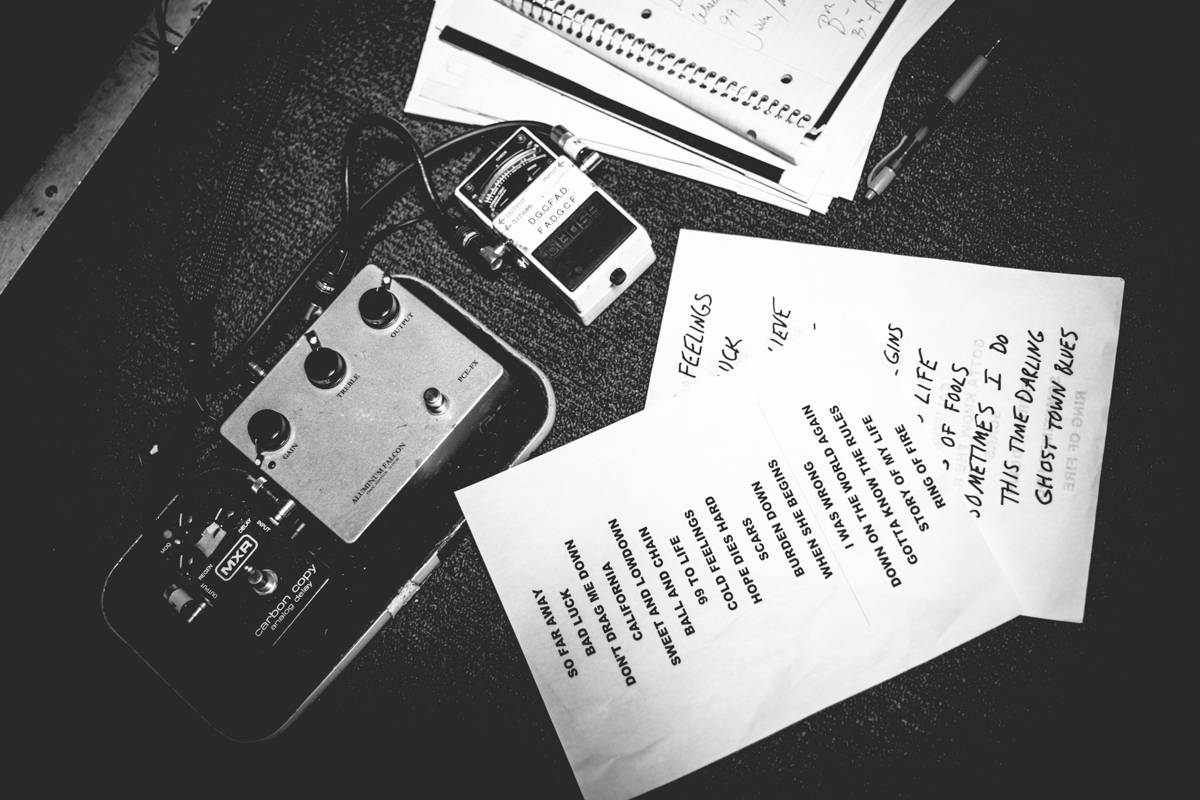 99
D.G.C.F.A.D.
F.A.D.G.C.F
OUTPUT
INPUT
OUTPUT
TREBLE
GAIN
PCE-FX
ALUMINUM FALCON
MXR
DELAY
INPUT
MOD
REGEN
OUTPUT
carbon copy
analog delay
FEELINGS
UCK
IEVE
GINS
LIFE
OF FOOLS
SOMETIMES I DO
THIS TIME DARLING
GHOST TOWN BLUES
RING OF FIRE
SO FAR AWAY
BAD LUCK
DON'T DRAG ME DOWN
CALIFORNIA
SWEET AND LOWDOWN
BALL AND CHAIN
99 TO LIFE
COLD FEELINGS
HOPE DIES HARD
SCARS
BURDEN DOWN
WHEN SHE BEGINS
I WAS WRONG
DOWN ON THE WORLD AGAIN
GOTTA KNOW THE RULES
STORY OF MY LIFE
RING OF FIRE